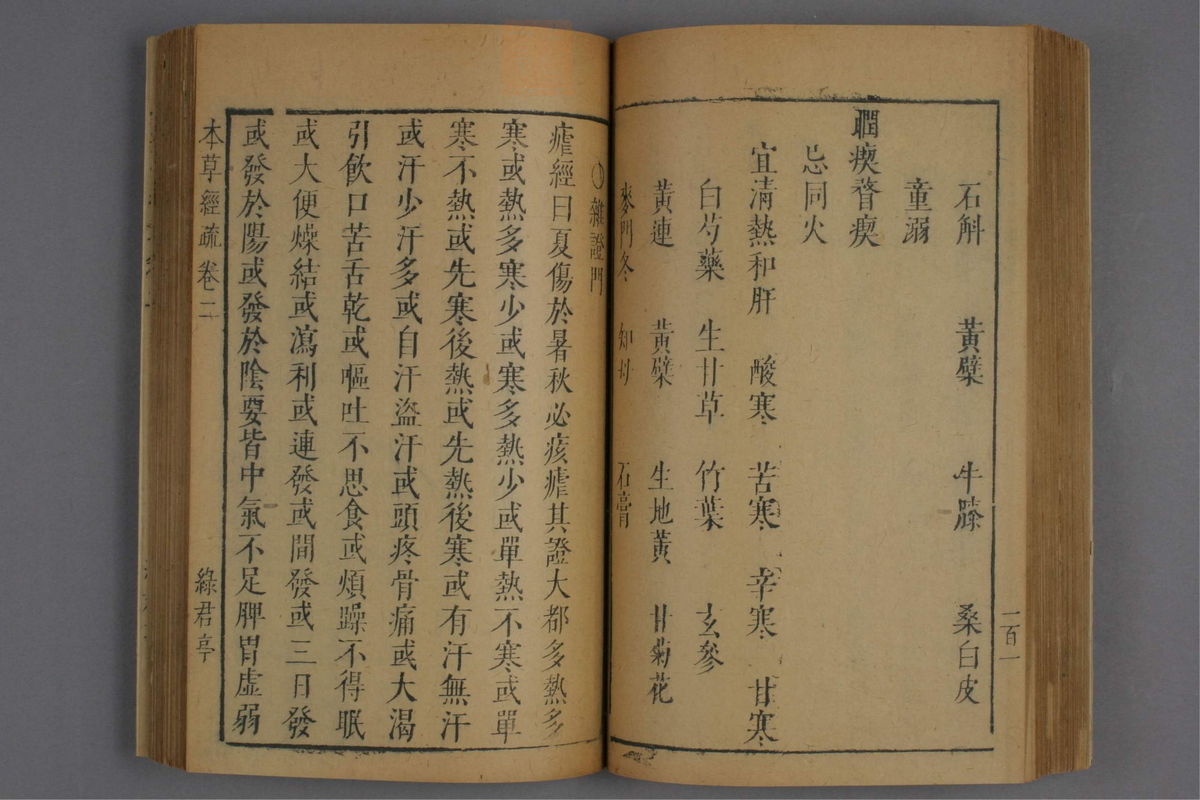 石斛 黃檗 牛膝 桑白皮
童溺
瞤瘈瞀瘈
忌同火
宜淸熱和肝 酸寒 苦寒 辛寒 甘寒
白芍藥 生甘草 竹葉 玄參
黃連 黃檗 生地黃 甘菊花
麥門冬 知母 石膏
一百一
〇雜證門
瘧經曰夏傷於暑秋必痎瘧其證大都多熱多
寒或熱多寒少或寒多熱少或單熱不寒或單
寒不熱或先寒後熱或先熱後寒或有汗無汗
或汗少汗多或自汗盜汗或頭疼骨痛或大渴
引飮口苦舌乾或嘔吐不思食或煩躁不得眠
或大便燥結或瀉利或連發或間發或三日發
或發於陽或發於陰要皆中氣不足脾胃虛弱
本草經疏 卷二
綠君亭